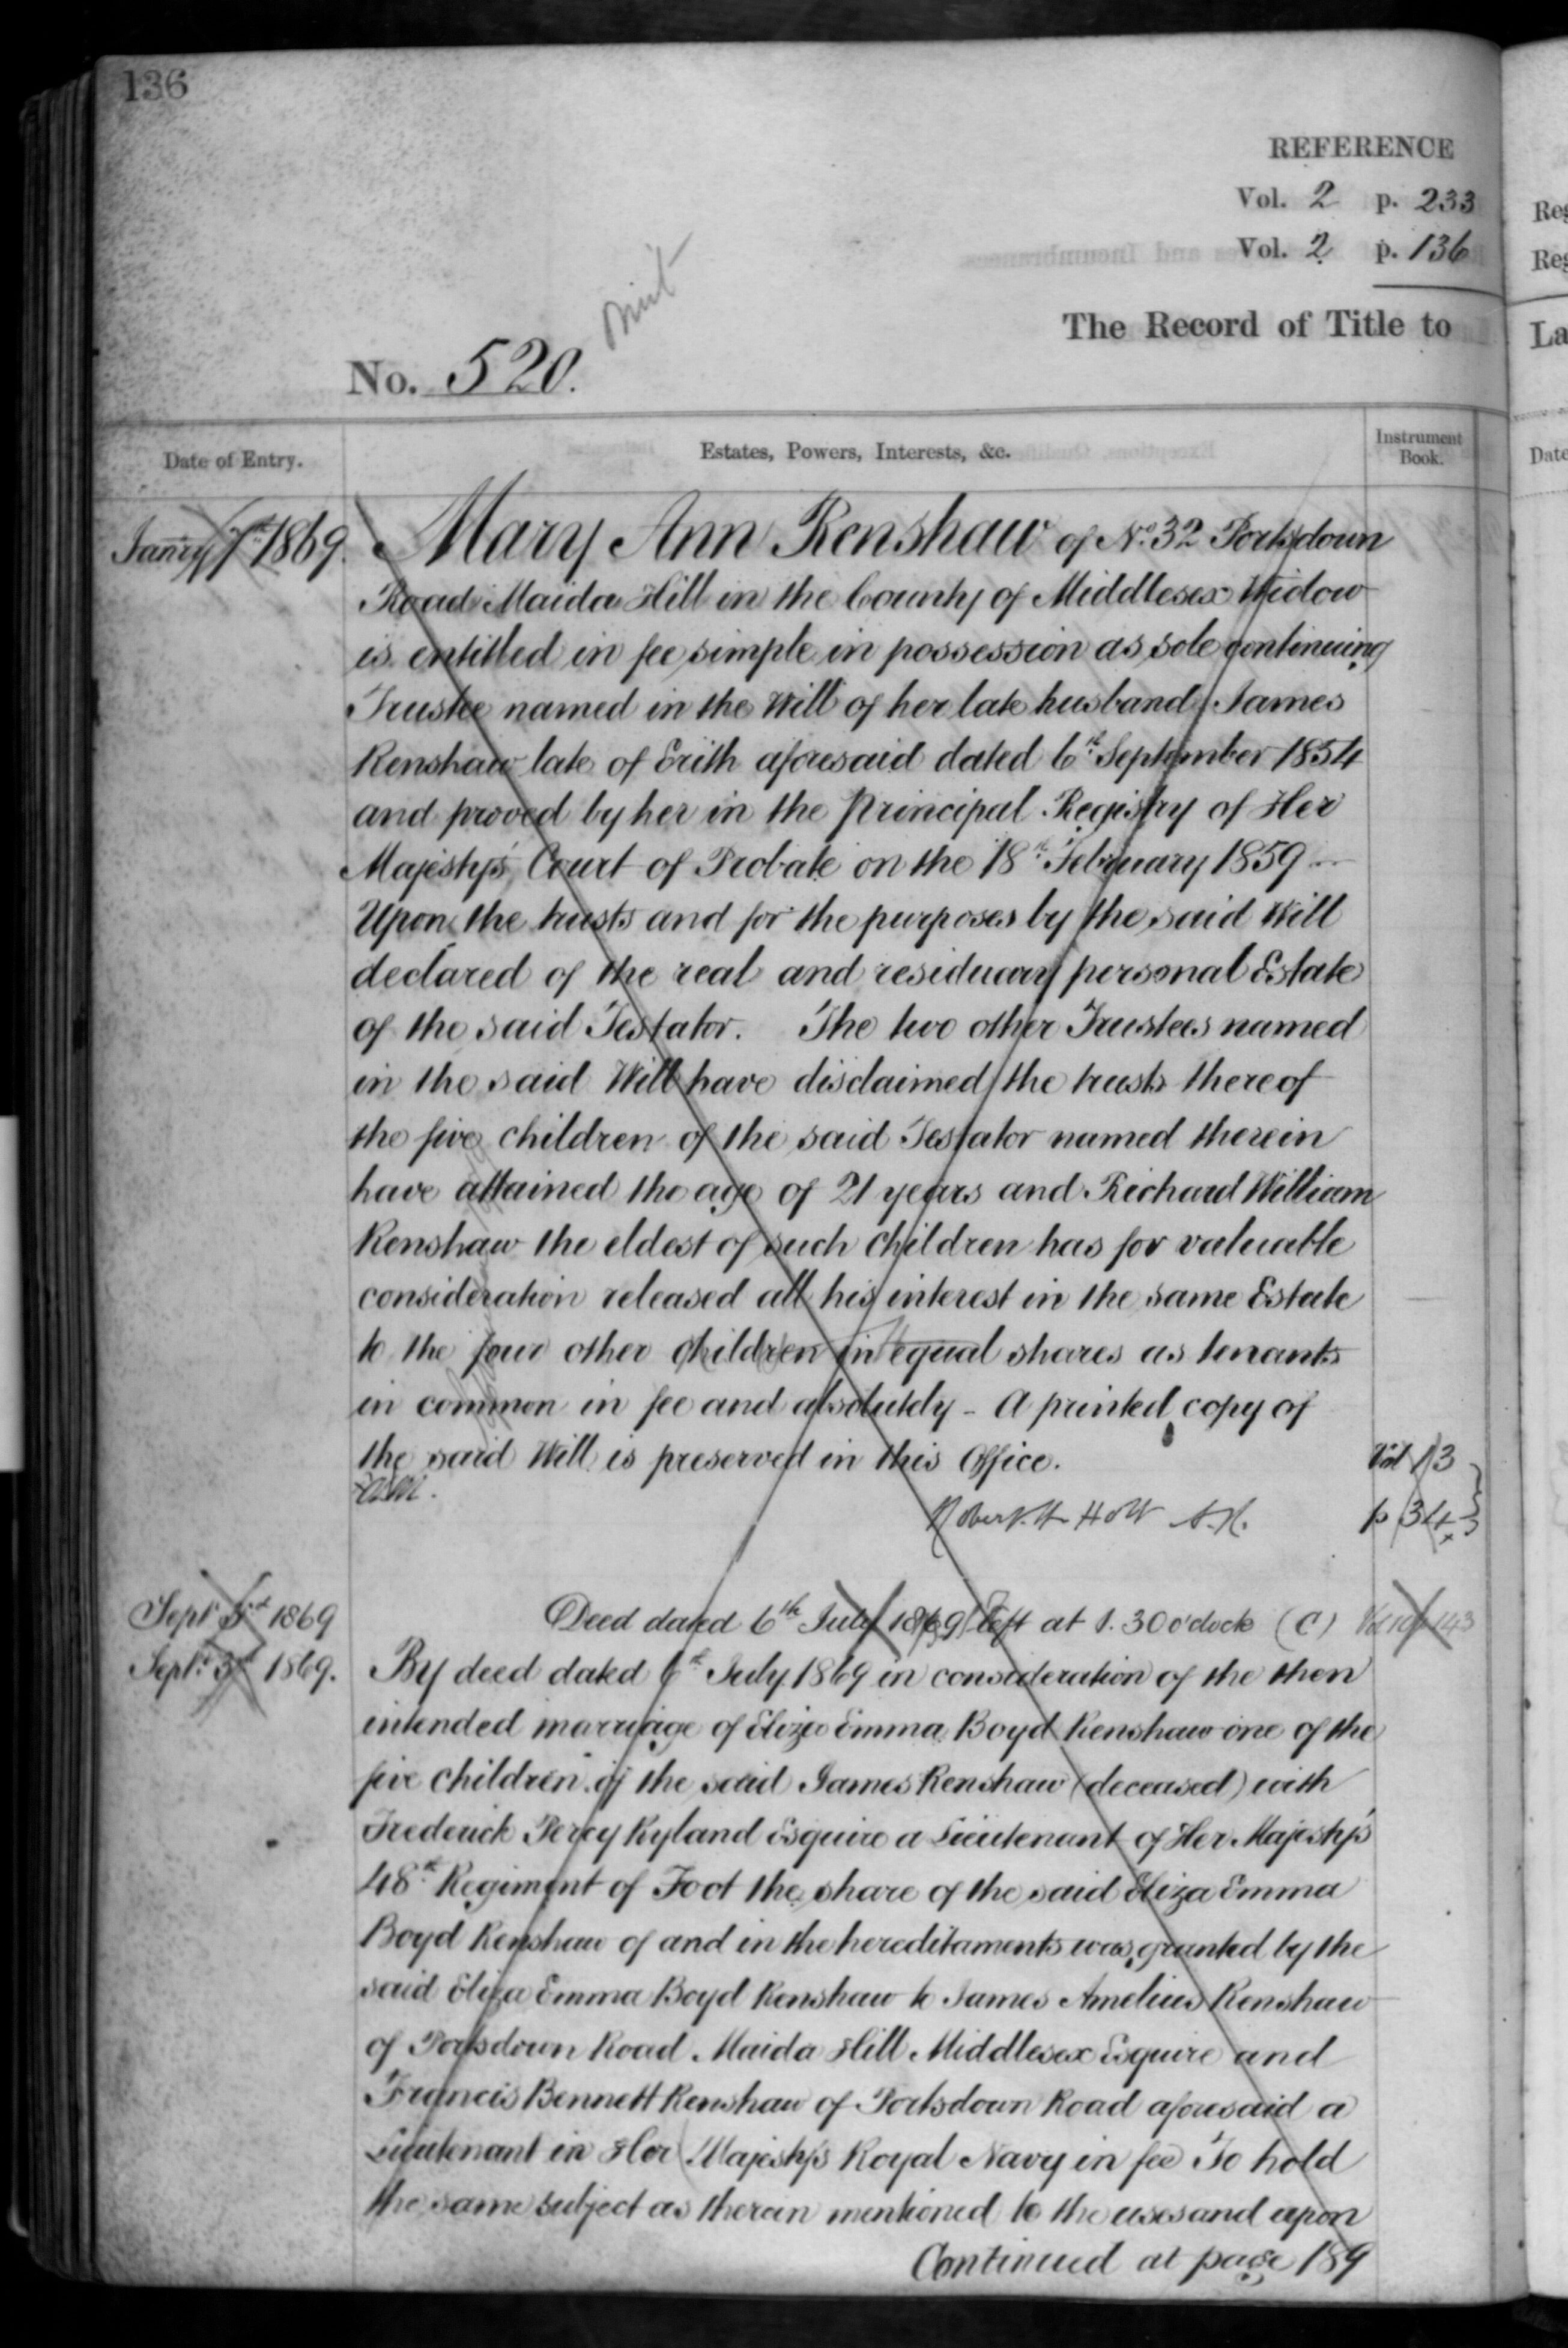 136
REFERENCE
Vol. 2 p. 233
Vol. 2 p. 136
The Record of Title to
No. 520.
Date of Entry.
Estates, Powers, Interests, &c.
Instrument Book.
Jan'ry 7th 1869.
Mary Ann Renshaw of No. 32 Portsdown
Road Maida Hill in the County of Middlesex Widow
is entitled in fee simple in possession as sole continuing
Trustee named in the Will of her late husband James
Renshaw late of Erith aforesaid dated 6th September 1854
and proved by her in the Principal Registry of Her
Majesty's Court of Probate on the 18th February 1859 —
Upon the trusts and for the purposes by the said Will
declared of the real and residuary personal Estate
of the said Testator. The two other Trustees named
in the said Will have disclaimed the trusts thereof
the five children of the said Testator named therein
have attained the age of 21 years and Richard William
Renshaw the eldest of such children has for valuable
consideration released all his interest in the same Estate
to the four other children in equal shares as tenants
in common in fee and absolutely – A printed copy of
the said Will is preserved in this Office.
Vol 13
Robert H Holt A.R.
p 34
Sept. 3rd 1869
Deed dated 6th July 1869 left at 1.30 o'clock (C)
143
Sept. 3rd 1869.
By deed dated 6th July 1869 in consideration of the then
intended marriage of Eliza Emma Boyd Renshaw one of the
five children of the said James Renshaw (deceased) with
Frederick Percy Ryland Esquire a Lieutenant of Her Majesty's
48th Regiment of Foot the share of the said Eliza Emma
Boyd Renshaw of and in the hereditaments was granted by the
said Eliza Emma Boyd Renshaw to James Amelius Renshaw
of Portsdown Road Maida Hill Middlesex Esquire and
Francis Bennett Renshaw of Portsdown Road aforesaid a
Lieutenant in Her Majesty's Royal Navy in fee To hold
the same subject as therein mentioned to the uses and upon
Continued at page 189
Reg
Reg
La
Date